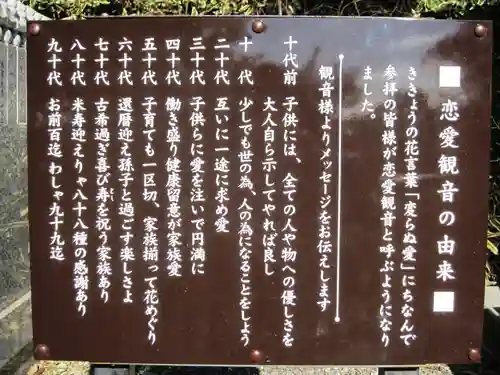 ■ 恋愛観音の由来 ■
ききょうの花言葉「変らぬ愛」にちなんで
参拝の皆様が恋愛観音と呼ぶようになり
ました。
観音様よりメッセージをお伝えします
十代前 子供には、全ての人や物への優しさを
大人自ら示してやれば良し
十代 少しでも世の為、人の為になることをしよう
二十代 互いに一途に求め愛
三十代 子供らに愛を注いで円満に
四十代 働き盛り健康留意が家族愛
五十代 子育ても一区切、家族揃って花めぐり
六十代 還暦迎え孫子と過ごす楽しさよ
七十代 古希過ぎ喜び寿を祝う家族あり
八十代 米寿迎えりゃ八十八種の感謝あり
九十代 お前百迄 わしゃ九十九迄